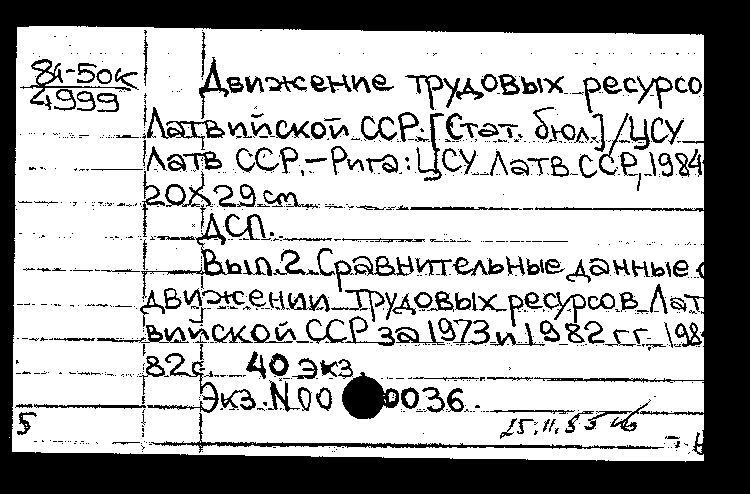 84-50к
4999
Движение трудовых ресурсо
Латвийской ССР: [Стат. бюл.] / ЦСУ
Латв ССР. – Рига: ЦСУ Латв ССР, 1984
20X29 cm
ДСП.
Вып. 2. Сравнительные данные о
движении трудовых ресурсов Лат
вийской ССР за 1973 и 1982 гг. 198
82 с. 40 экз.
Экз. N 00 0036.
5